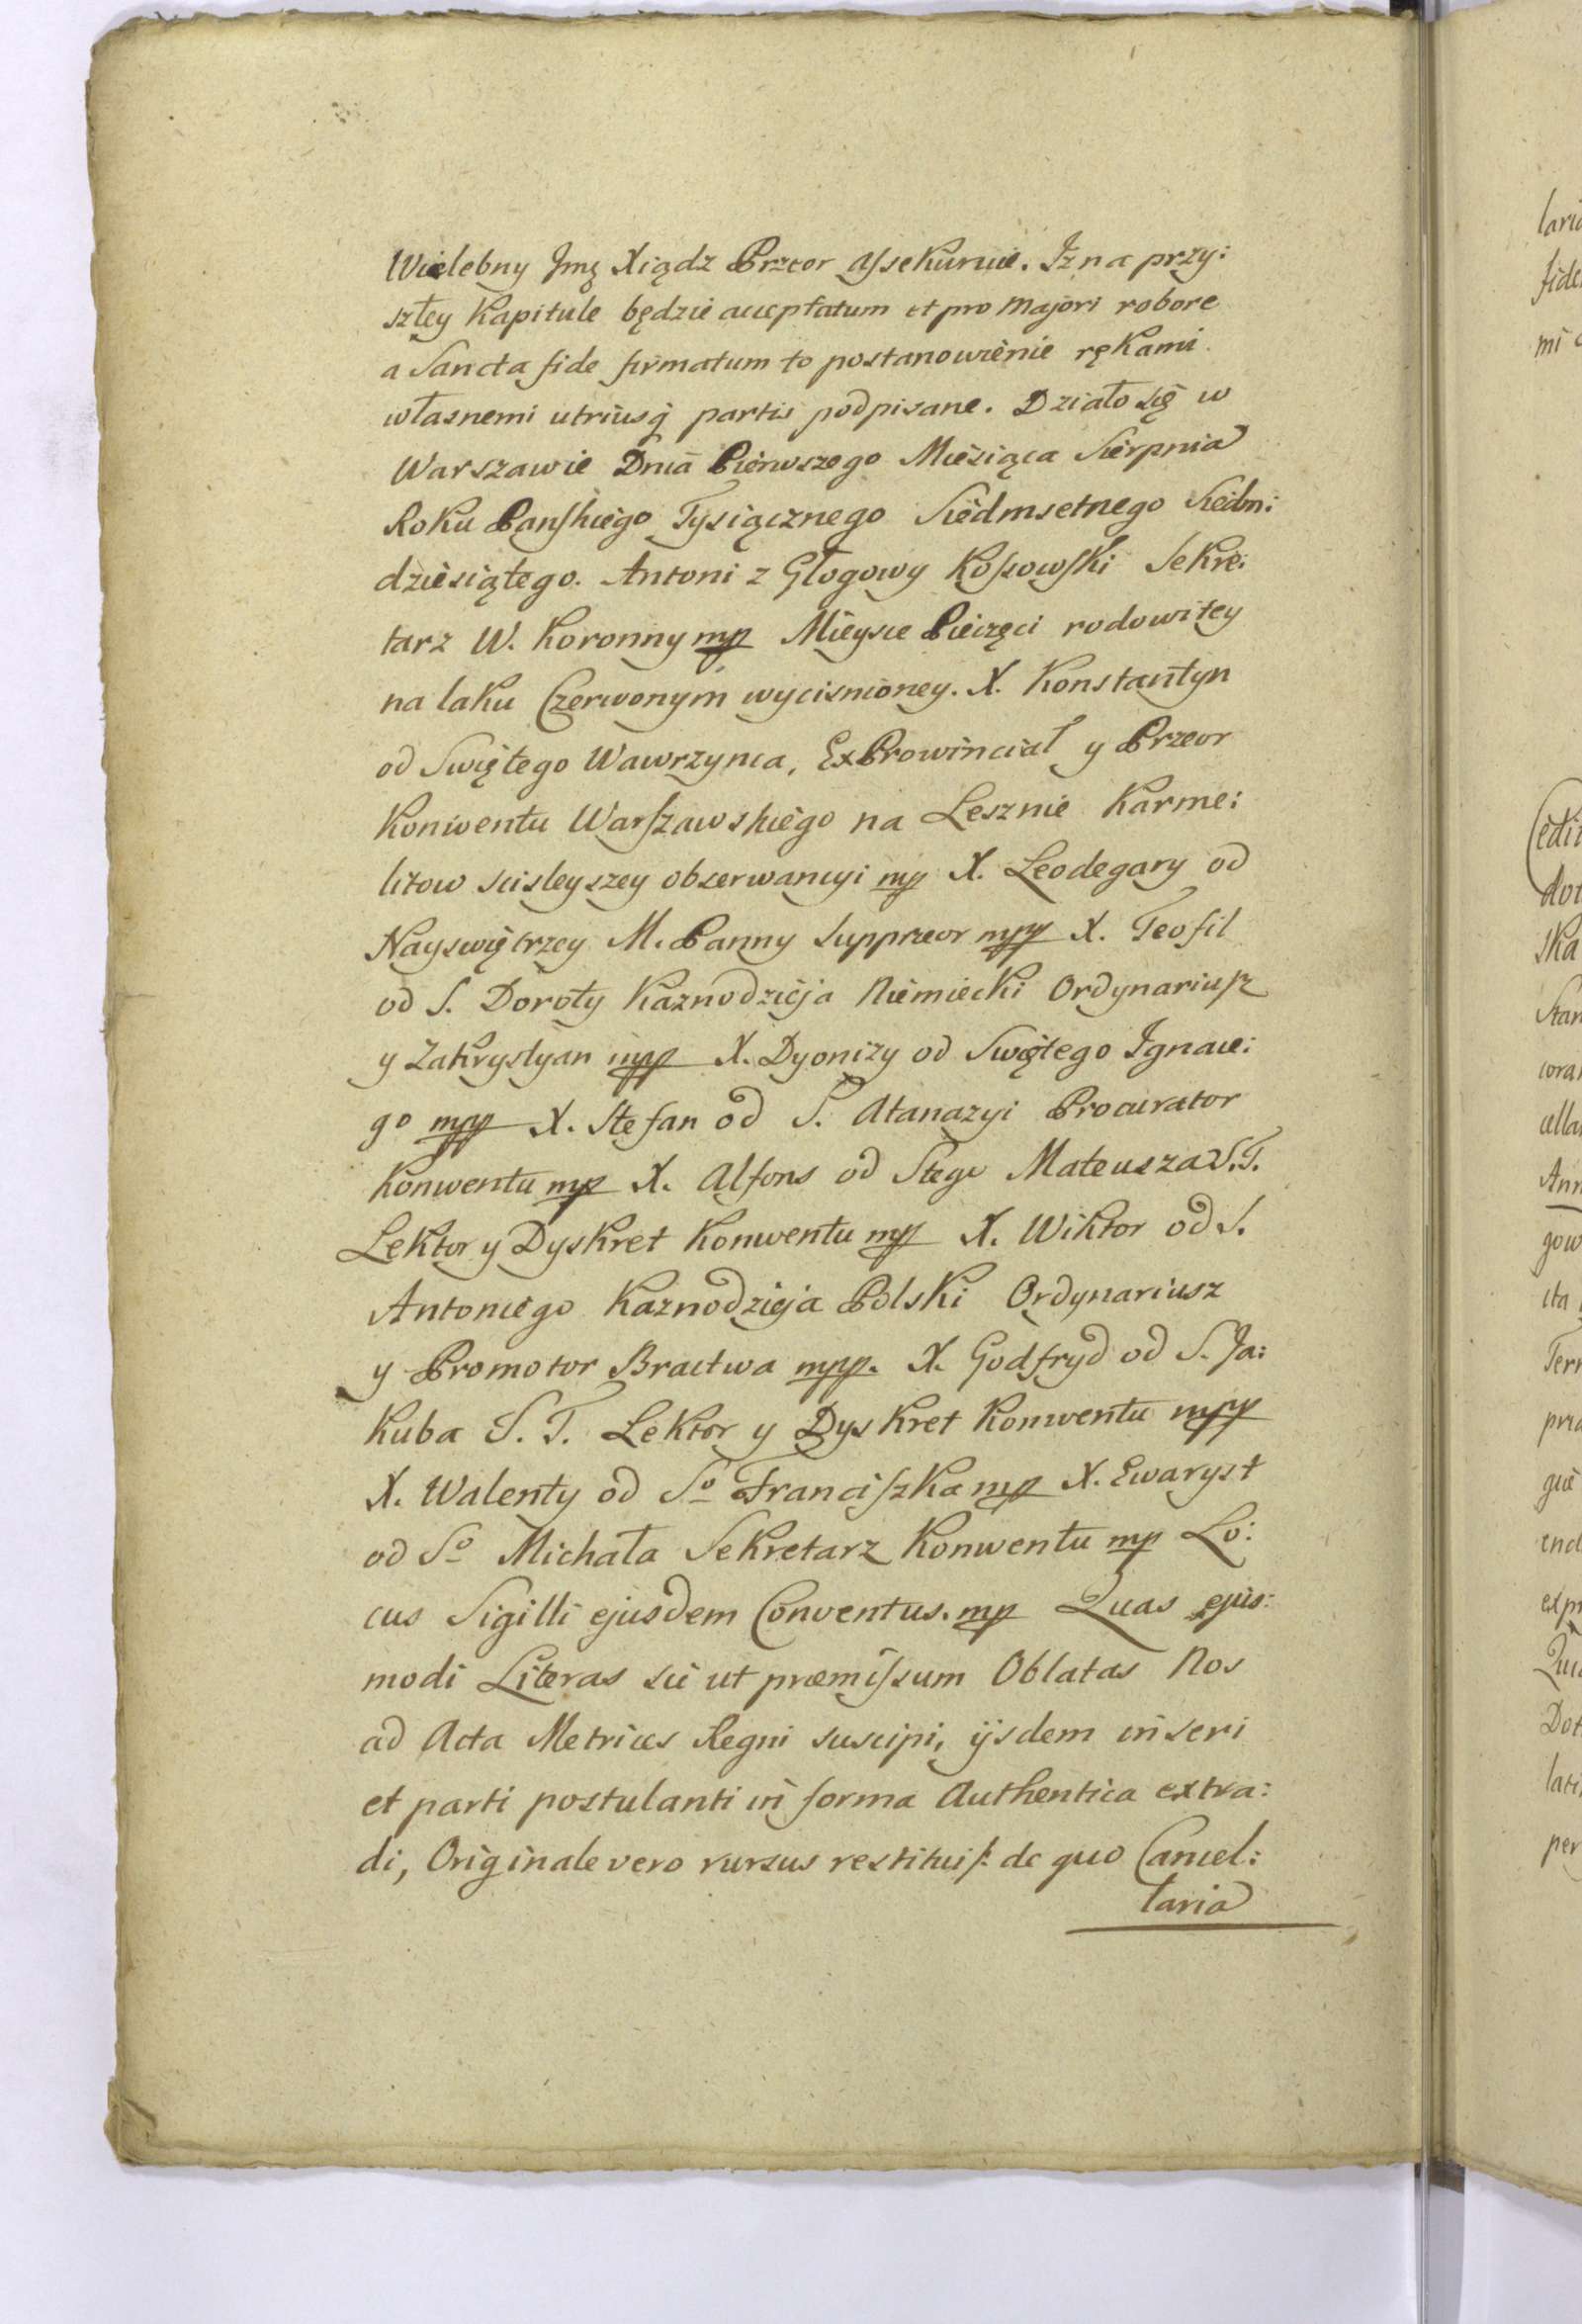 Wielebny Jmę Xiądz Przeor assekuruie. Iz na przy:
szłey Kapitule będzie acceptatum et pro Majori robore
a Sancta fide firmatum to postanowienie rękami
własnemi utriusq́ partis podpisane. Działo się w
Warszawie Dnia Pierwszego Miesiąca Sierpnia
Roku Pańskiego Tysiącznego Siedmsetnego Siedm:
dziesiątego. Antoni z Głogowy Kossowski Sekre:
tarz W. Koronny mp Mieysce Pieczęci rodowitey
na laku Czerwonym wycisnioney. X. Konstantyn
od Swiętego Wawrzynca, ExProwinciał y Przeor
Konwentu Warszawskiego na Lesznie Karme:
litow scisleyszey obserwancyi mp X. Leodegary od
Nayswiętrzey M. Panny Supprzeor mpp X. Teofil
od S. Doroty Kaznodzieja Niemiecki Ordynariusz
y Zakrystyan mpp X. Dyonizy od Swiętego Ignace:
go mpp X. Stefan od S. Atanazyi Procurator
Konwentu mp X. Alfons od Stego Mateusza S.T.
Lektor y Dyskret Konwentu mp X. Wiktor od S.
Antoniego Kaznodzieja Polski Ordynariusz
y Promotor Bractwa mpp. X. Godfryd od S. Ja:
kuba S. T. Lektor y Dyskret Konwentu mpp
X. Walenty od Sº Franciszka mp X. Ewaryst
od Sº Michała Sekretarz Konwentu mp Lo:
cus Sigilli ejusdem Conventus. mp Quas ejus:
modi Literas sic ut præmissum Oblatas Nos
ad Acta Metrices Regni suscipi, ijsdem inseri
et parti postulanti in forma Authentica extra:
di, Originale vero rursus restitui s: de quo Cancel:
laria